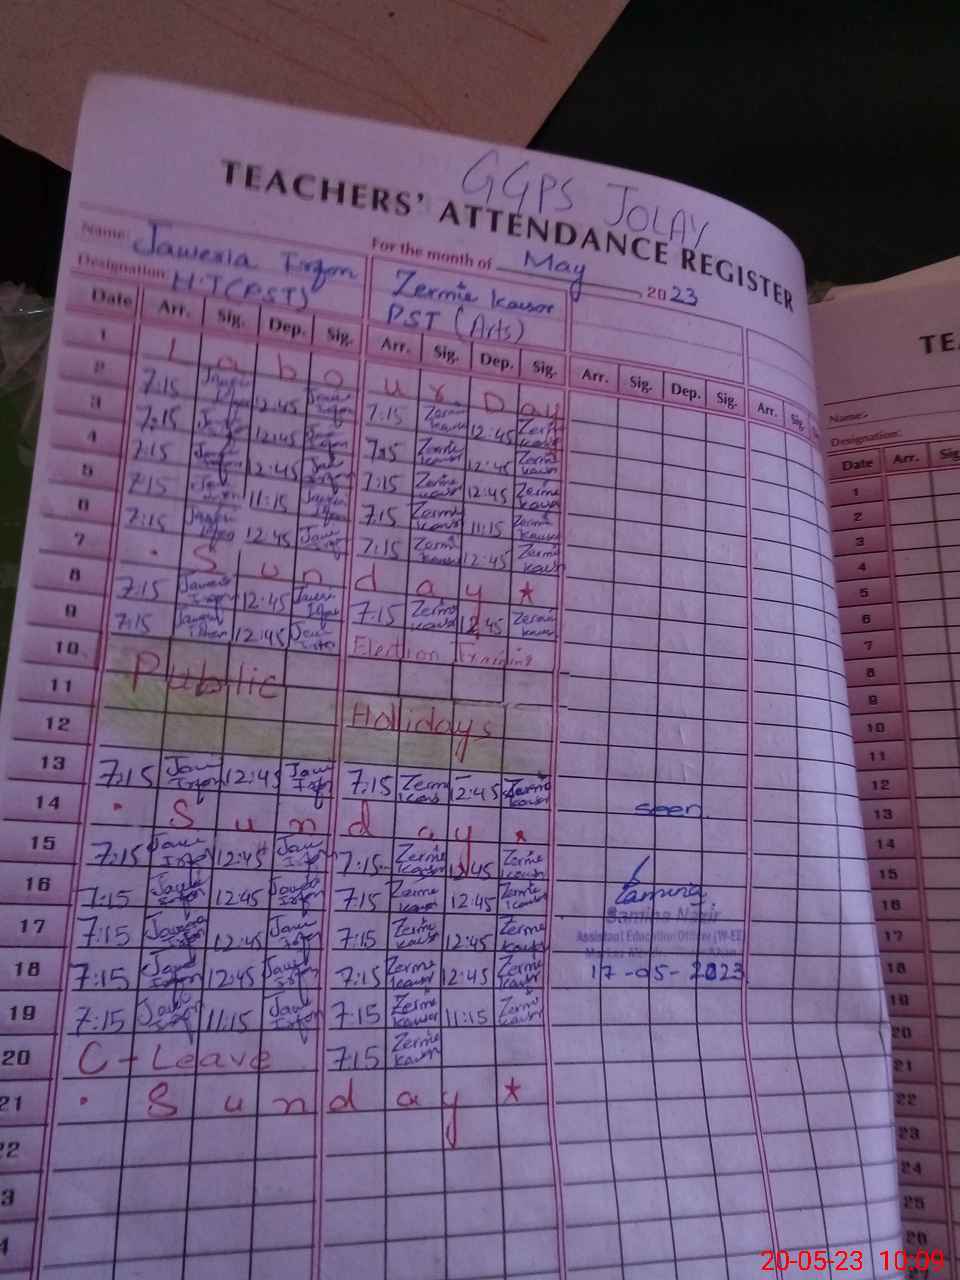 GGPS JOLAY
TEACHERS' ATTENDANCE REGISTER
Name: Jaweria Irfan For the month of May 2023
Designation: H.T (PST) Zermie Kausar
PST (Arts)
Date Arr. Sig. Dep. Sig. Arr. Sig. Dep. Sig. Arr. Sig. Dep. Sig. Arr. Sig.
1 Labour Day
2 7:15 12:45 7:15 Zermie Kausar 12:45 Zermie Kausar
3 7:15 12:45 7:15 Zermie Kausar 12:45 Zermie Kausar
4 7:15 12:45 7:15 Zermie Kausar 12:45 Zermie Kausar
5 7:15 11:15 7:15 Zermie Kausar 11:15 Zermie Kausar
6 7:15 12:45 7:15 Zermie Kausar 12:45 Zermie Kausar
7 Sunday
8 7:15 Jaweria Irfan 12:45 Jaweria Irfan 7:15 Zermie Kausar 12:45 Zermie Kausar
9 7:15 12:45 7:15 Zermie Kausar 12:45 Zermie Kausar
10 Election Training
11 Public
12 Holidays
13 7:15 Jaw Irfan 12:45 Jaw Irfan 7:15 Zermie Kausar 12:45 Zermie Kausar
14 Sunday
seen
15 7:15 Jaw Irfan 12:45 Jaw Irfan 7:15 Zermie Kausar 12:45 Zermie Kausar
16 7:15 Irfan 12:45 Irfan 7:15 Zermie Kausar 12:45 Zermie Kausar
Samina
Samina Nazir
17 7:15 12:45 7:15 Zermie Kausar 12:45 Zermie Kausar
Assistant Education Officer (W-EE)
18 7:15 12:45 7:15 Zermie Kausar 12:45 Zermie Kausar
17-05-2023
19 7:15 11:15 7:15 Zermie Kausar 11:15 Zermie Kausar
20 C-Leave 7:15 Zermie Kausar
21 Sunday
22
3
4
TE
Name:
Designation:
Date Arr. Sig
1
2
3
4
5
6
7
8
9
10
11
12
13
14
15
16
17
18
19
20
21
22
23
24
25
26
20-05-23 10:09